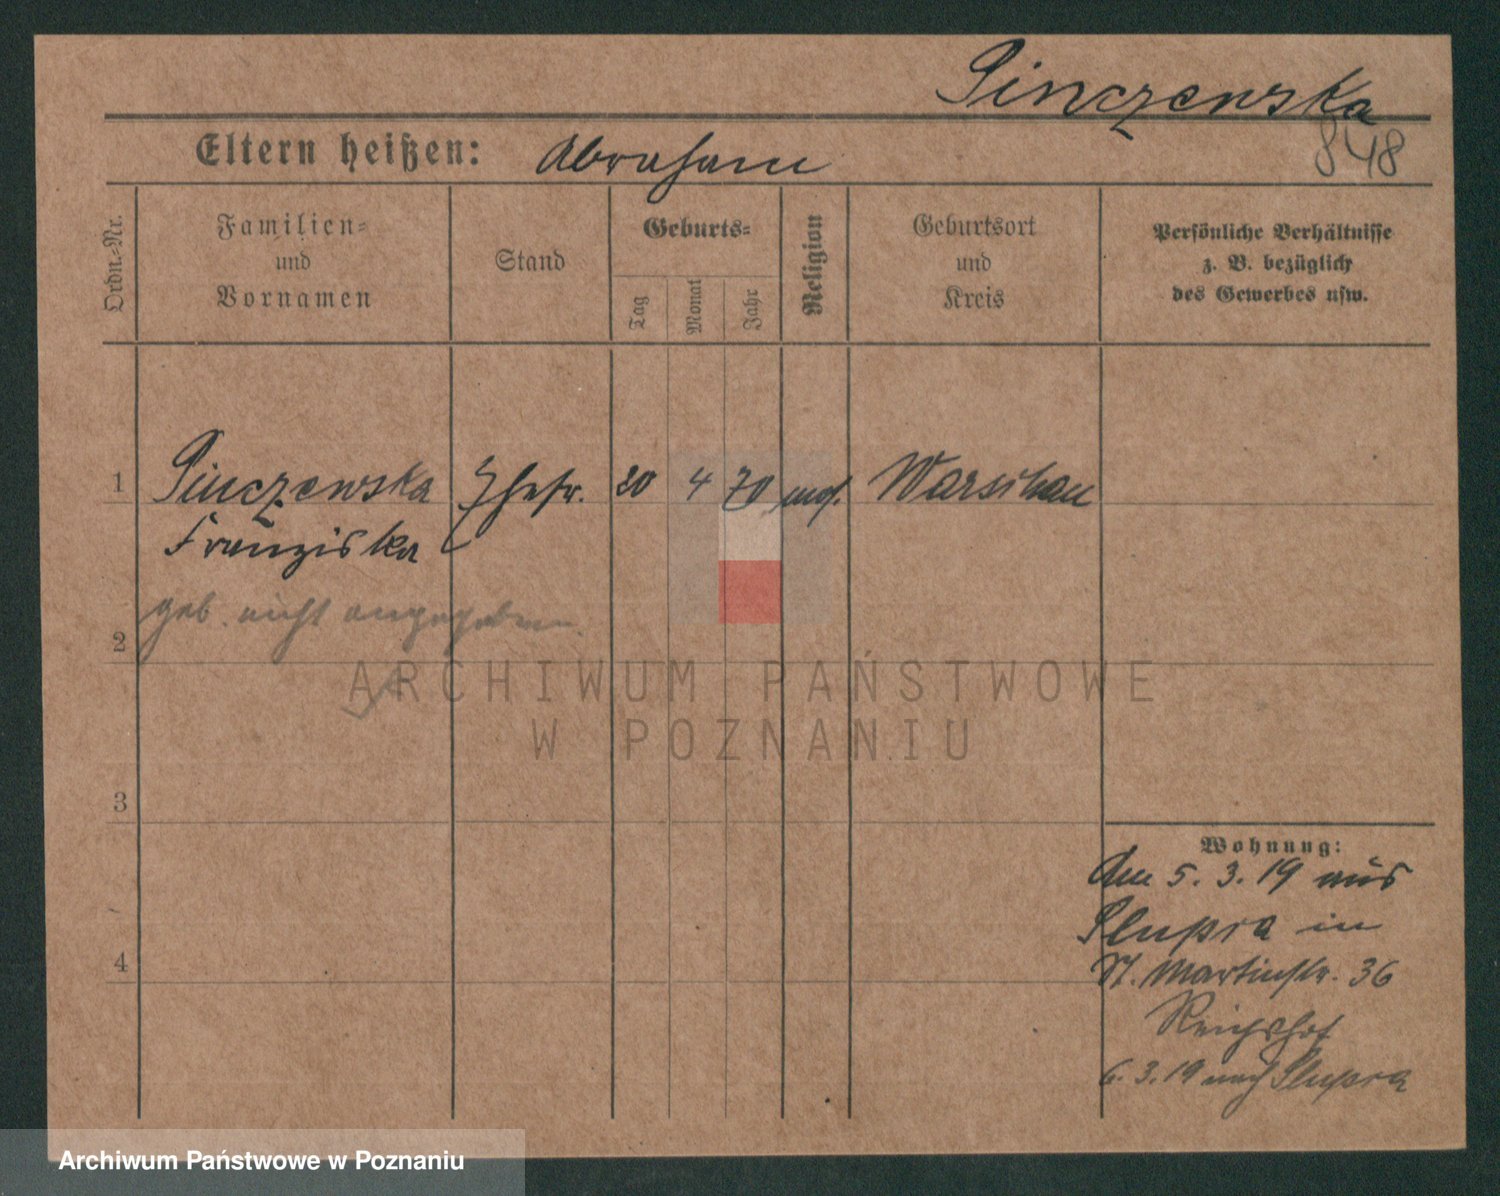 Pinczewska
848
Eltern heißen: Abraham
Ordn.=Nr.
Familien=
und
Vornamen
Stand
Geburts=
Tag
Monat
Jahr
Religion
Geburtsort
und
Kreis
Persönliche Verhältnisse
z. B. bezüglich
des Gewerbes usw.
1 Pinczewska Ehefr. 20 4 70 mos. Warschau
Franziska
geb. nicht angegeben.
2
ARCHIWUM PAŃSTWOWE
W POZNANIU
3
Wohnung:
Am 5. 3. 19 aus
Slupca in
4
St. Martinstr. 36
Reichshof
6. 3. 19 nach Slupca
Archiwum Państwowe w Poznaniu